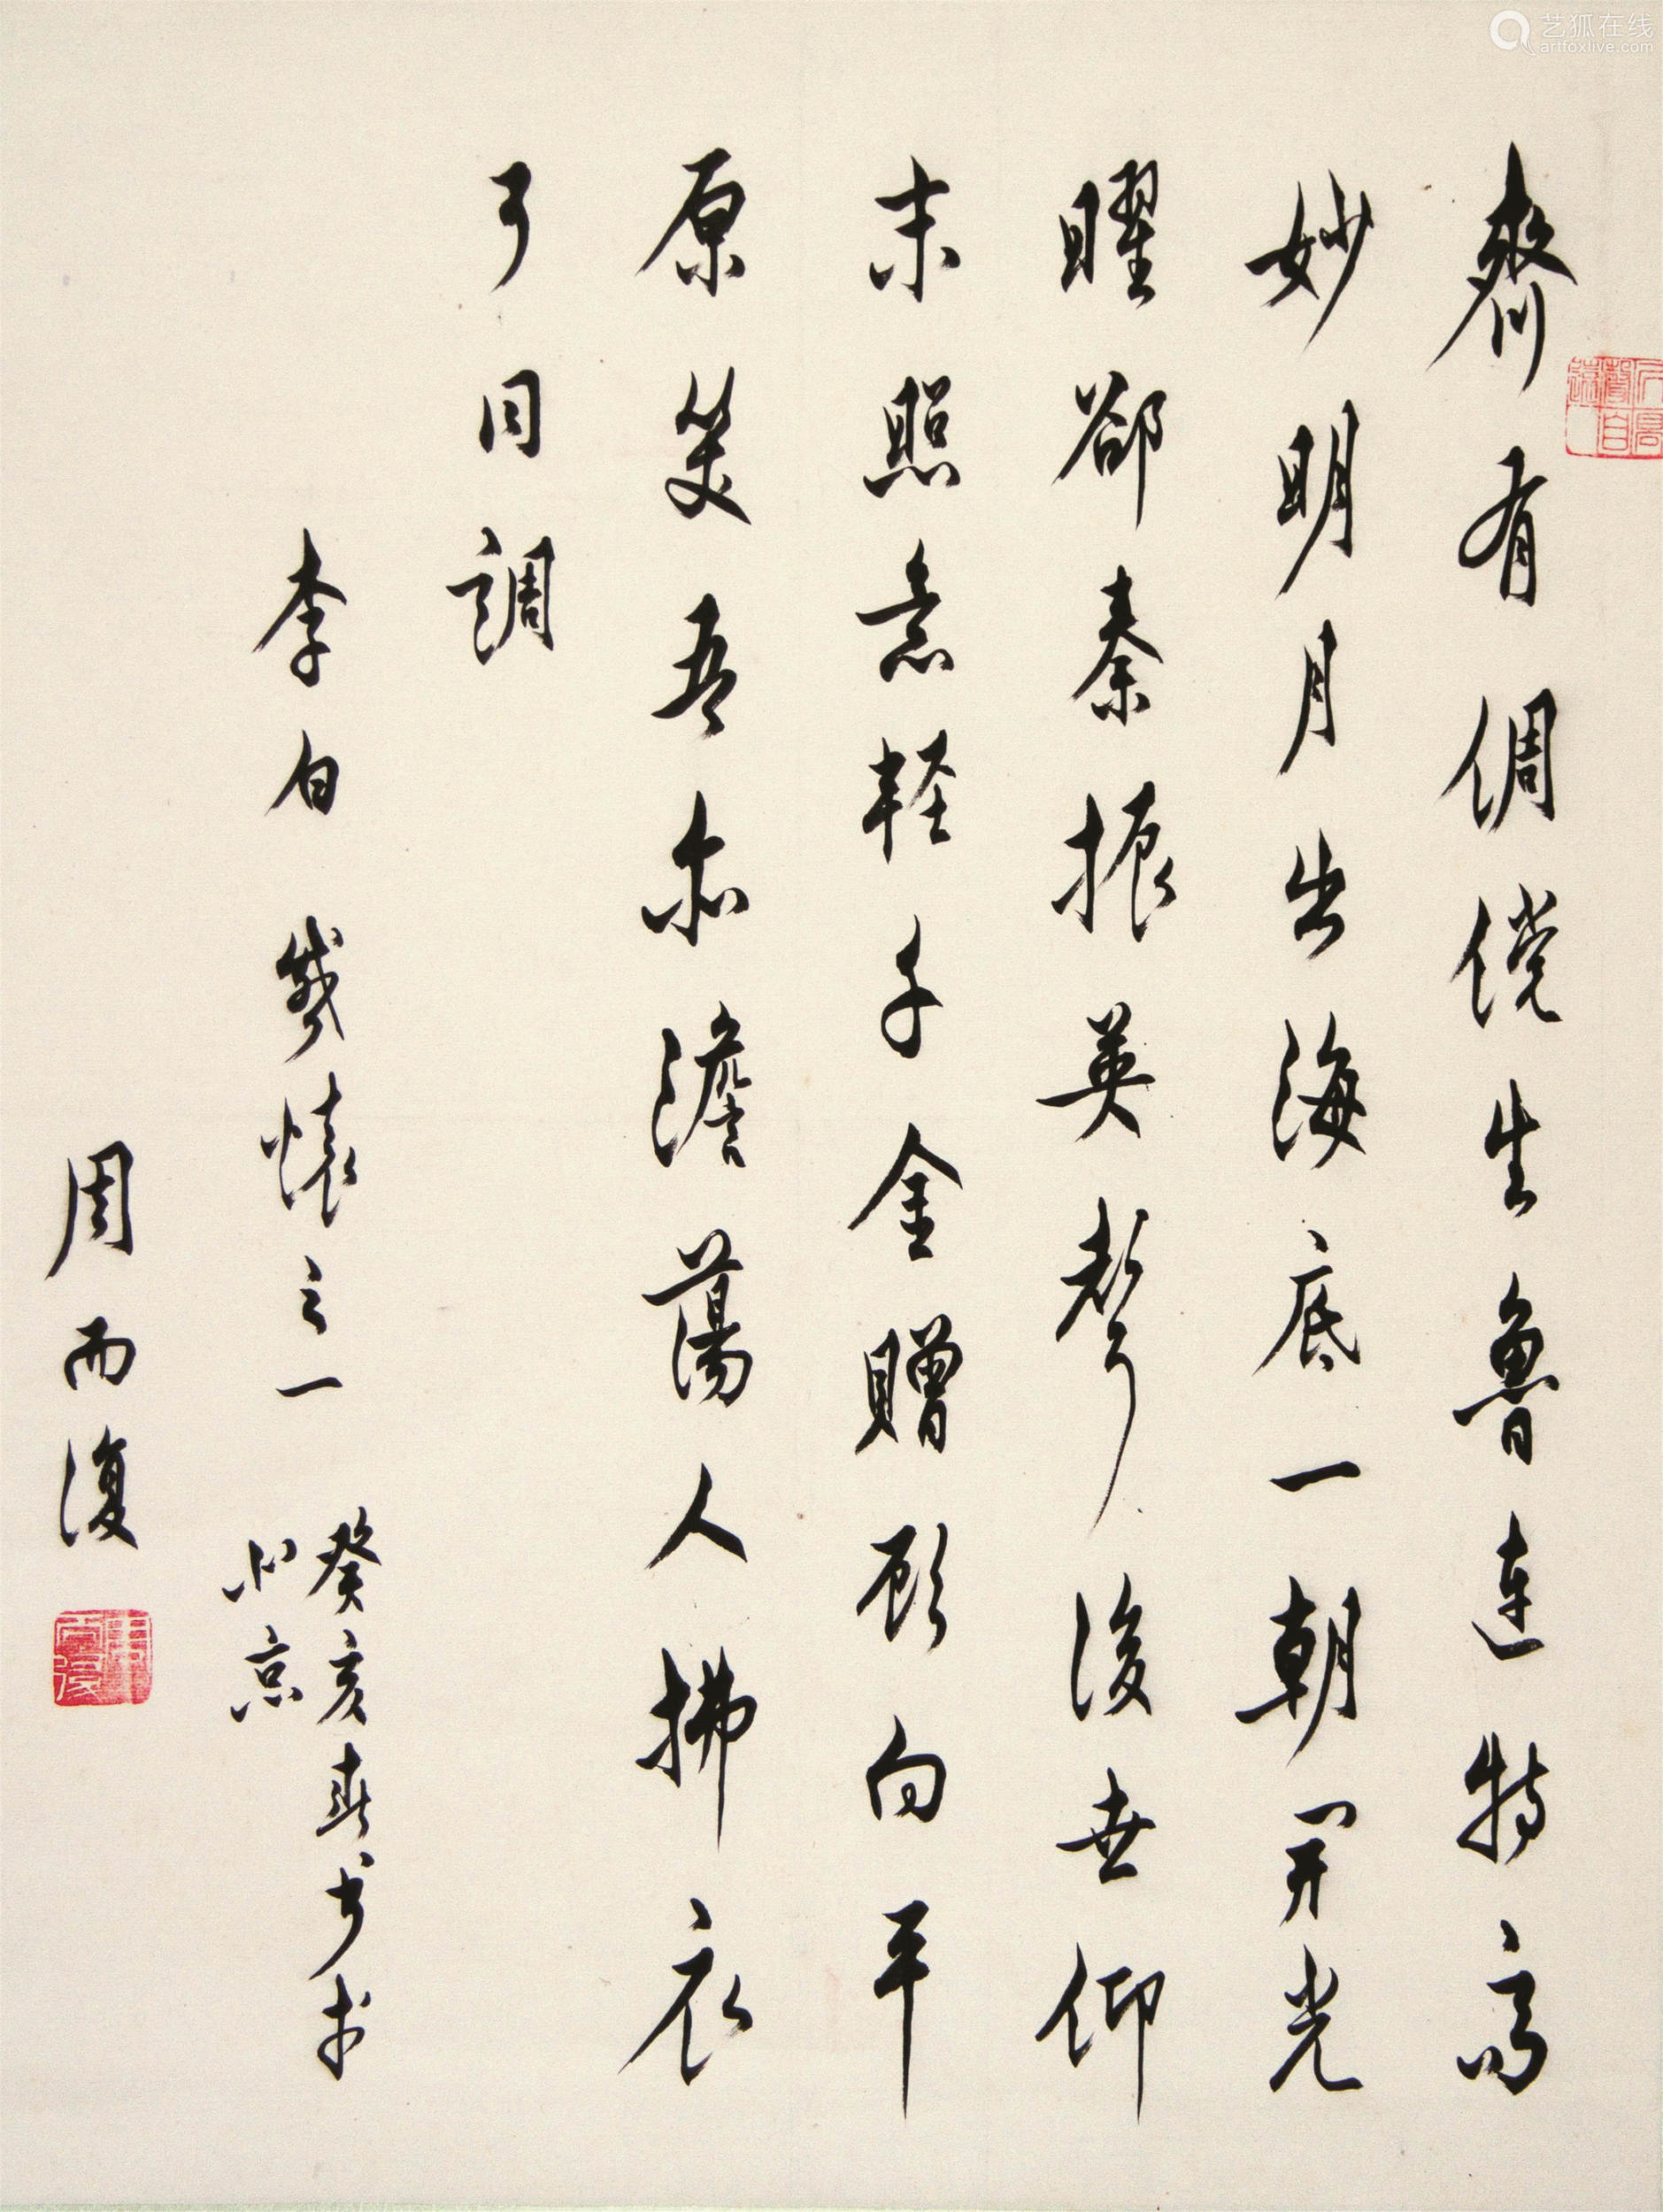 齊有倜儻生魯連特高
妙明月出海底一朝開光
曜郤秦振英聲後世仰
末照意軽千金贈顧向平
原笑吾亦澹蕩人拂衣
可同調
李白 感懷之一
癸亥春书於
北京
周而復
艺狐在线
artfoxlive.com